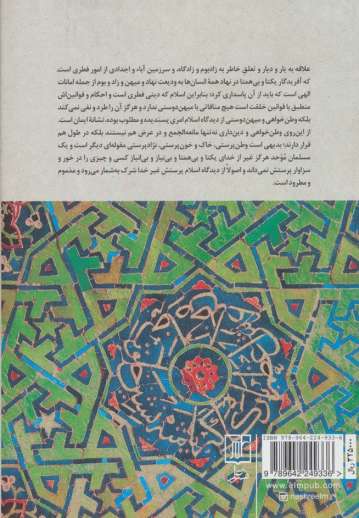 علاقه به یار و دیار و تعلق خاطر به زادبوم و زادگاه، و سرزمین آباء و اجدادی از امور فطری است
که آفریدگار یکتا و بی‌همتا در نهاد همهٔ انسان‌ها به ودیعت نهاد و میهن و زاد و بوم از جمله امانات
الهی است که باید از آن پاسداری کرد؛ بنابراین اسلام که دینی فطری است و احکام و قوانین‌اش
منطبق با قوانین خلقت است هیچ منافاتی با میهن‌دوستی ندارد و هرگز آن را طرد و نفی نمی‌کند
بلکه وطن‌خواهی و میهن‌دوستی از دیدگاه اسلام امری پسندیده و مطلوب بوده، نشانهٔ ایمان است.
از این‌روی وطن‌خواهی و دین‌داری نه‌تنها مانعه‌الجمع و در عرض هم نیستند، بلکه در طول هم
قرار دارند؛ بدیهی است وطن‌پرستی، خاک و خون‌پرستی، نژادپرستی مقوله‌ای دیگر است و یک
مسلمان مُوحد هرگز غیر از خدای یکتا و بی‌همتا و بی‌نیاز و بی‌انباز کسی و چیزی را در خور و
سزاوار پرستش نمی‌داند و اصولاً از دیدگاه اسلام پرستش غیر خدا شرک به‌شمار می‌رود و مذموم
و مطرود است.
ISBN 978-964-224-933-6
9 789642 249336
www.elmpub.com
nashreelm